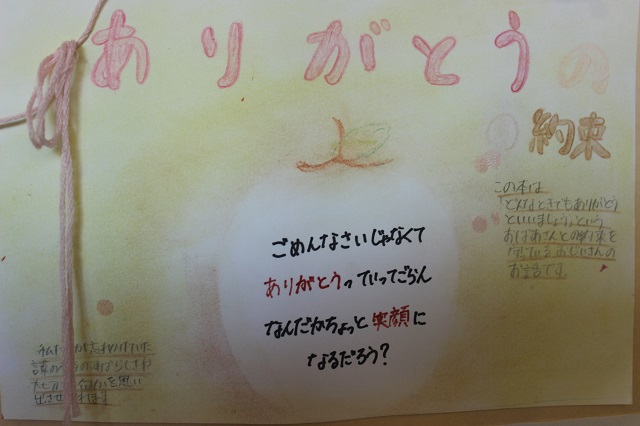 ありがとうの
約束
この本は
「どんなときでもありがとう
といいましょう」という
おばあさんとの約束を
守っているおじいさんの
お話です。
ごめんなさいじゃなくて
ありがとうっていってごらん
なんだかちょっと笑顔に
なるだろう?
私たちが忘れかけていた
を思い
出させ